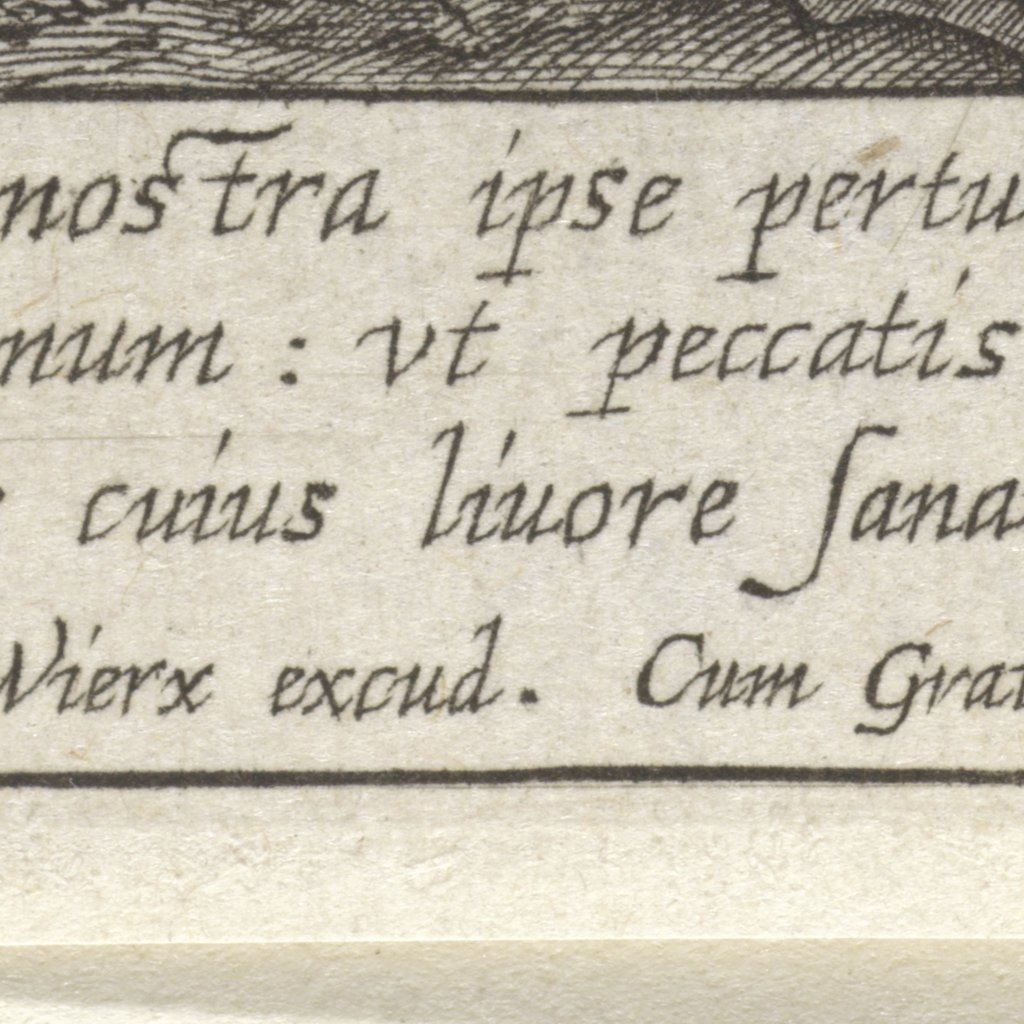 nostra ipse pertu
num : vt peccatis
cuius liuore ſana
Wierx excud. Cum Grat